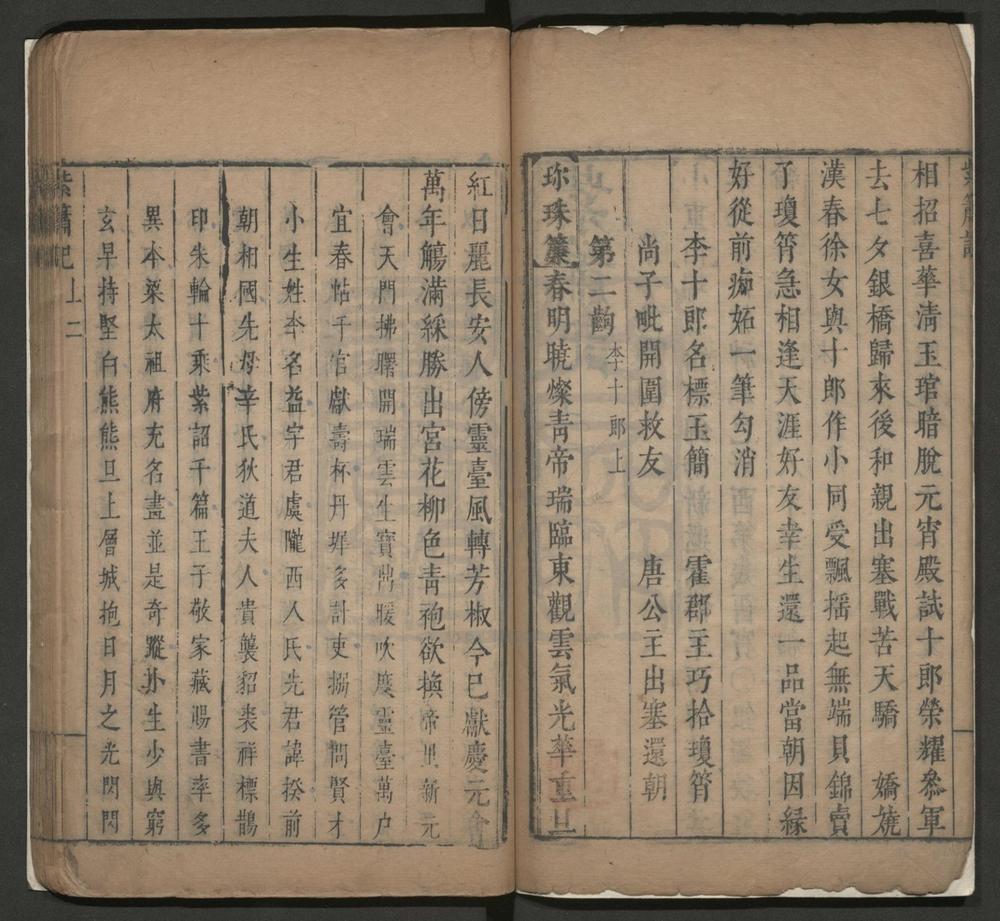 紫簫記
相招喜華清玉琯暗脫元宵殿試十郎榮耀叅軍
去七夕銀橋歸來後和親出塞戰苦天驕　嬌嬈
漢春徐女與十郎作小同受飄搖起無端貝錦賣
了瓊筲急相逢天涯好友幸生還一品當朝因緣
好從前痴妬一筆勾消
李十郎名標玉簡　霍郡王巧拾瓊筲
尚子毗開圍救友　唐公主出塞還朝
第二齣　李十郎上
珎珠簾春明曉燦靑帝瑞臨東觀雲氣光華重旦
紅日麗長安人傍靈臺風轉芳椒今巳獻慶元會
萬年觴滿綵勝出宮花柳色靑袍欲換帝里新元
會天門拂曙開瑞雲生寶鼎暖吹度靈臺萬户
宜春帖千官獻壽杯丹墀多計吏搦管問賢才
小生姓李名益字君虞隴西人氏先君諱揆前
朝相國先母辛氏狄道夫人貴襲貂裘祥標鵲
印朱輪十乘紫詔千篇王子敬家藏賜書率多
異本梁太祖府充名畫並是奇蹤小生少與窮
玄早持堅白熊熊旦上層城抱日月之光閃閃
紫簫記　上　二